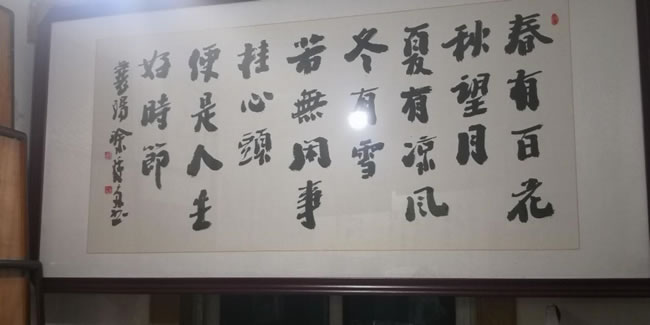 春有百花
秋望月
夏有凉风
冬有雪
若無闲事
挂心頭
便是人生
好時節